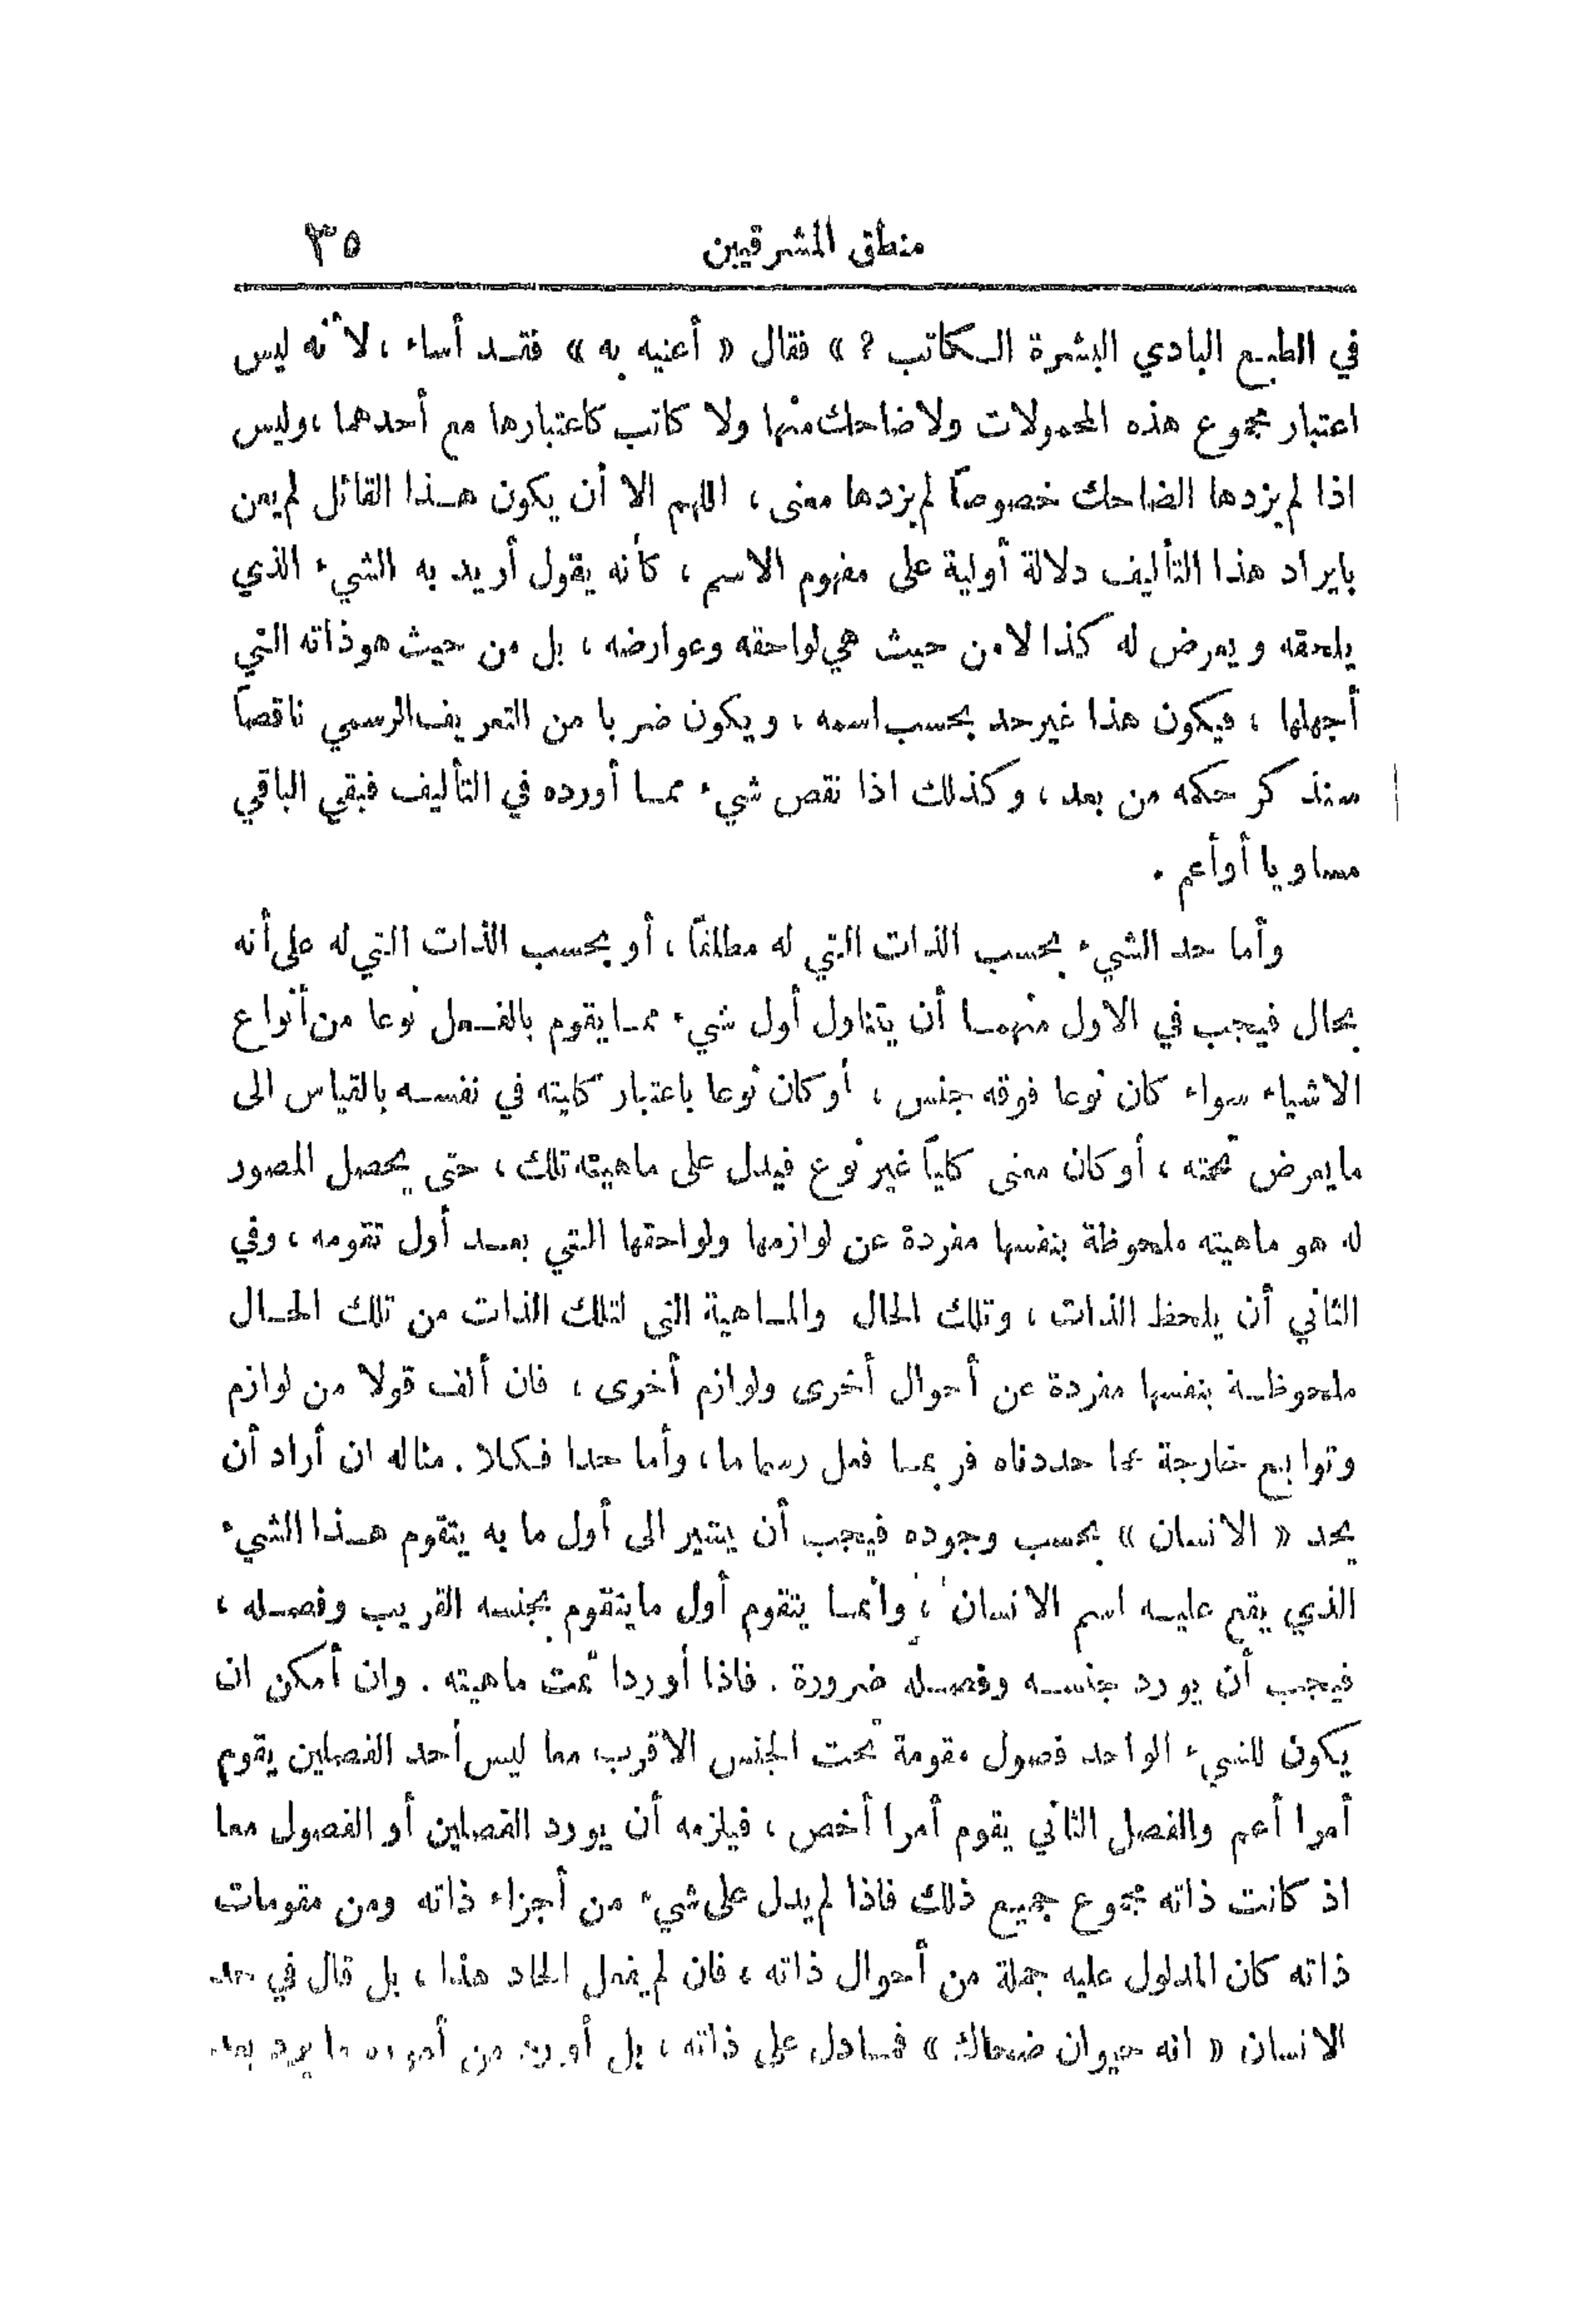 منطق المشرقيين ٣٥
في الطبع البادي البشرة الكاتب ؟ » فقال « أعنيه به » فقد أساء ، لأنه ليس
اعتبار مجموع هذه المحمولات ولا ضاحك منها ولا كاتب كاعتبارها مع أحدهما ، وليس
اذا لم يزدها الضاحك خصوصاً لم يزدها معنى ، اللهم الا أن يكون هذا القائل لم يعن
بايراد هذا التأليف دلالة أولية على مفهوم الاسم ، كأنه يقول أريد به الشيء الذي
يلحقه ويعرض له كذا لا من حيث هي لواحقه وعوارضه ، بل من حيث هو ذاته التي
أجهلها ، فيكون هذا غير حد بحسب اسمه ، ويكون ضربا من التعريف الرسمي ناقصاً
سنذكر حكمه من بعد ، وكذلك اذا نقص شيء مما أورده في التأليف فبقي الباقي
مساويا أو أعم .
وأما حد الشيء بحسب الذات التي له مطلقاً ، أو بحسب الذات التي له على أنه
بحال فيجب في الاول منهما أن يتناول أول شيء مما يقوم بالفعل نوعا من أنواع
الاشياء سواء كان نوعا فوقه جنس ، أو كان نوعا باعتبار كليته في نفسه بالقياس الى
ما يعرض تحته ، أو كان معنى كلياً غير نوع فيدل على ماهيته تلك ، حتى يحصل المصور
له هو ماهيته ملحوظة بنفسها مفردة عن لوازمها ولواحقها التي بعد أول تقومه ، وفي
الثاني أن يلحظ الذات ، وتلك الحال والماهية التي لتلك الذات من تلك الحال
ملحوظة بنفسها مفردة عن أحوال أخرى ولوازم أخرى ، فان ألف قولا من لوازم
وتوابع خارجة عما حددناه فربما فعل رسما ما ، وأما حدا فكلا . مثاله ان أراد أن
يحد « الانسان » بحسب وجوده فيجب أن يشير الى أول ما به يتقوم هذا الشيء
الذي يقع عليه اسم الانسان ، وانما يتقوم أول ما يتقوم بجنسه القريب وفصله ،
فيجب أن يورد جنسه وفصله ضرورة . فاذا أوردا تمت ماهيته . وان أمكن ان
يكون للشيء الواحد فصول مقومة تحت الجنس الاقرب معا ليس أحد الفصلين يقوم
أمرا أعم والفصل الثاني يقوم أمرا أخص ، فيلزمه أن يورد الفصلين أو الفصول معا
اذ كانت ذاته مجموع جميع ذلك فاذا لم يدل على شيء من أجزاء ذاته ومن مقومات
ذاته كان المدلول عليه جملة من أحوال ذاته ، فان لم يفعل الحاد هذا ، بل قال في حد
الانسان « انه حيوان ضحاك » فما دل على ذاته ، بل أورد من أموره ما يرد بعد